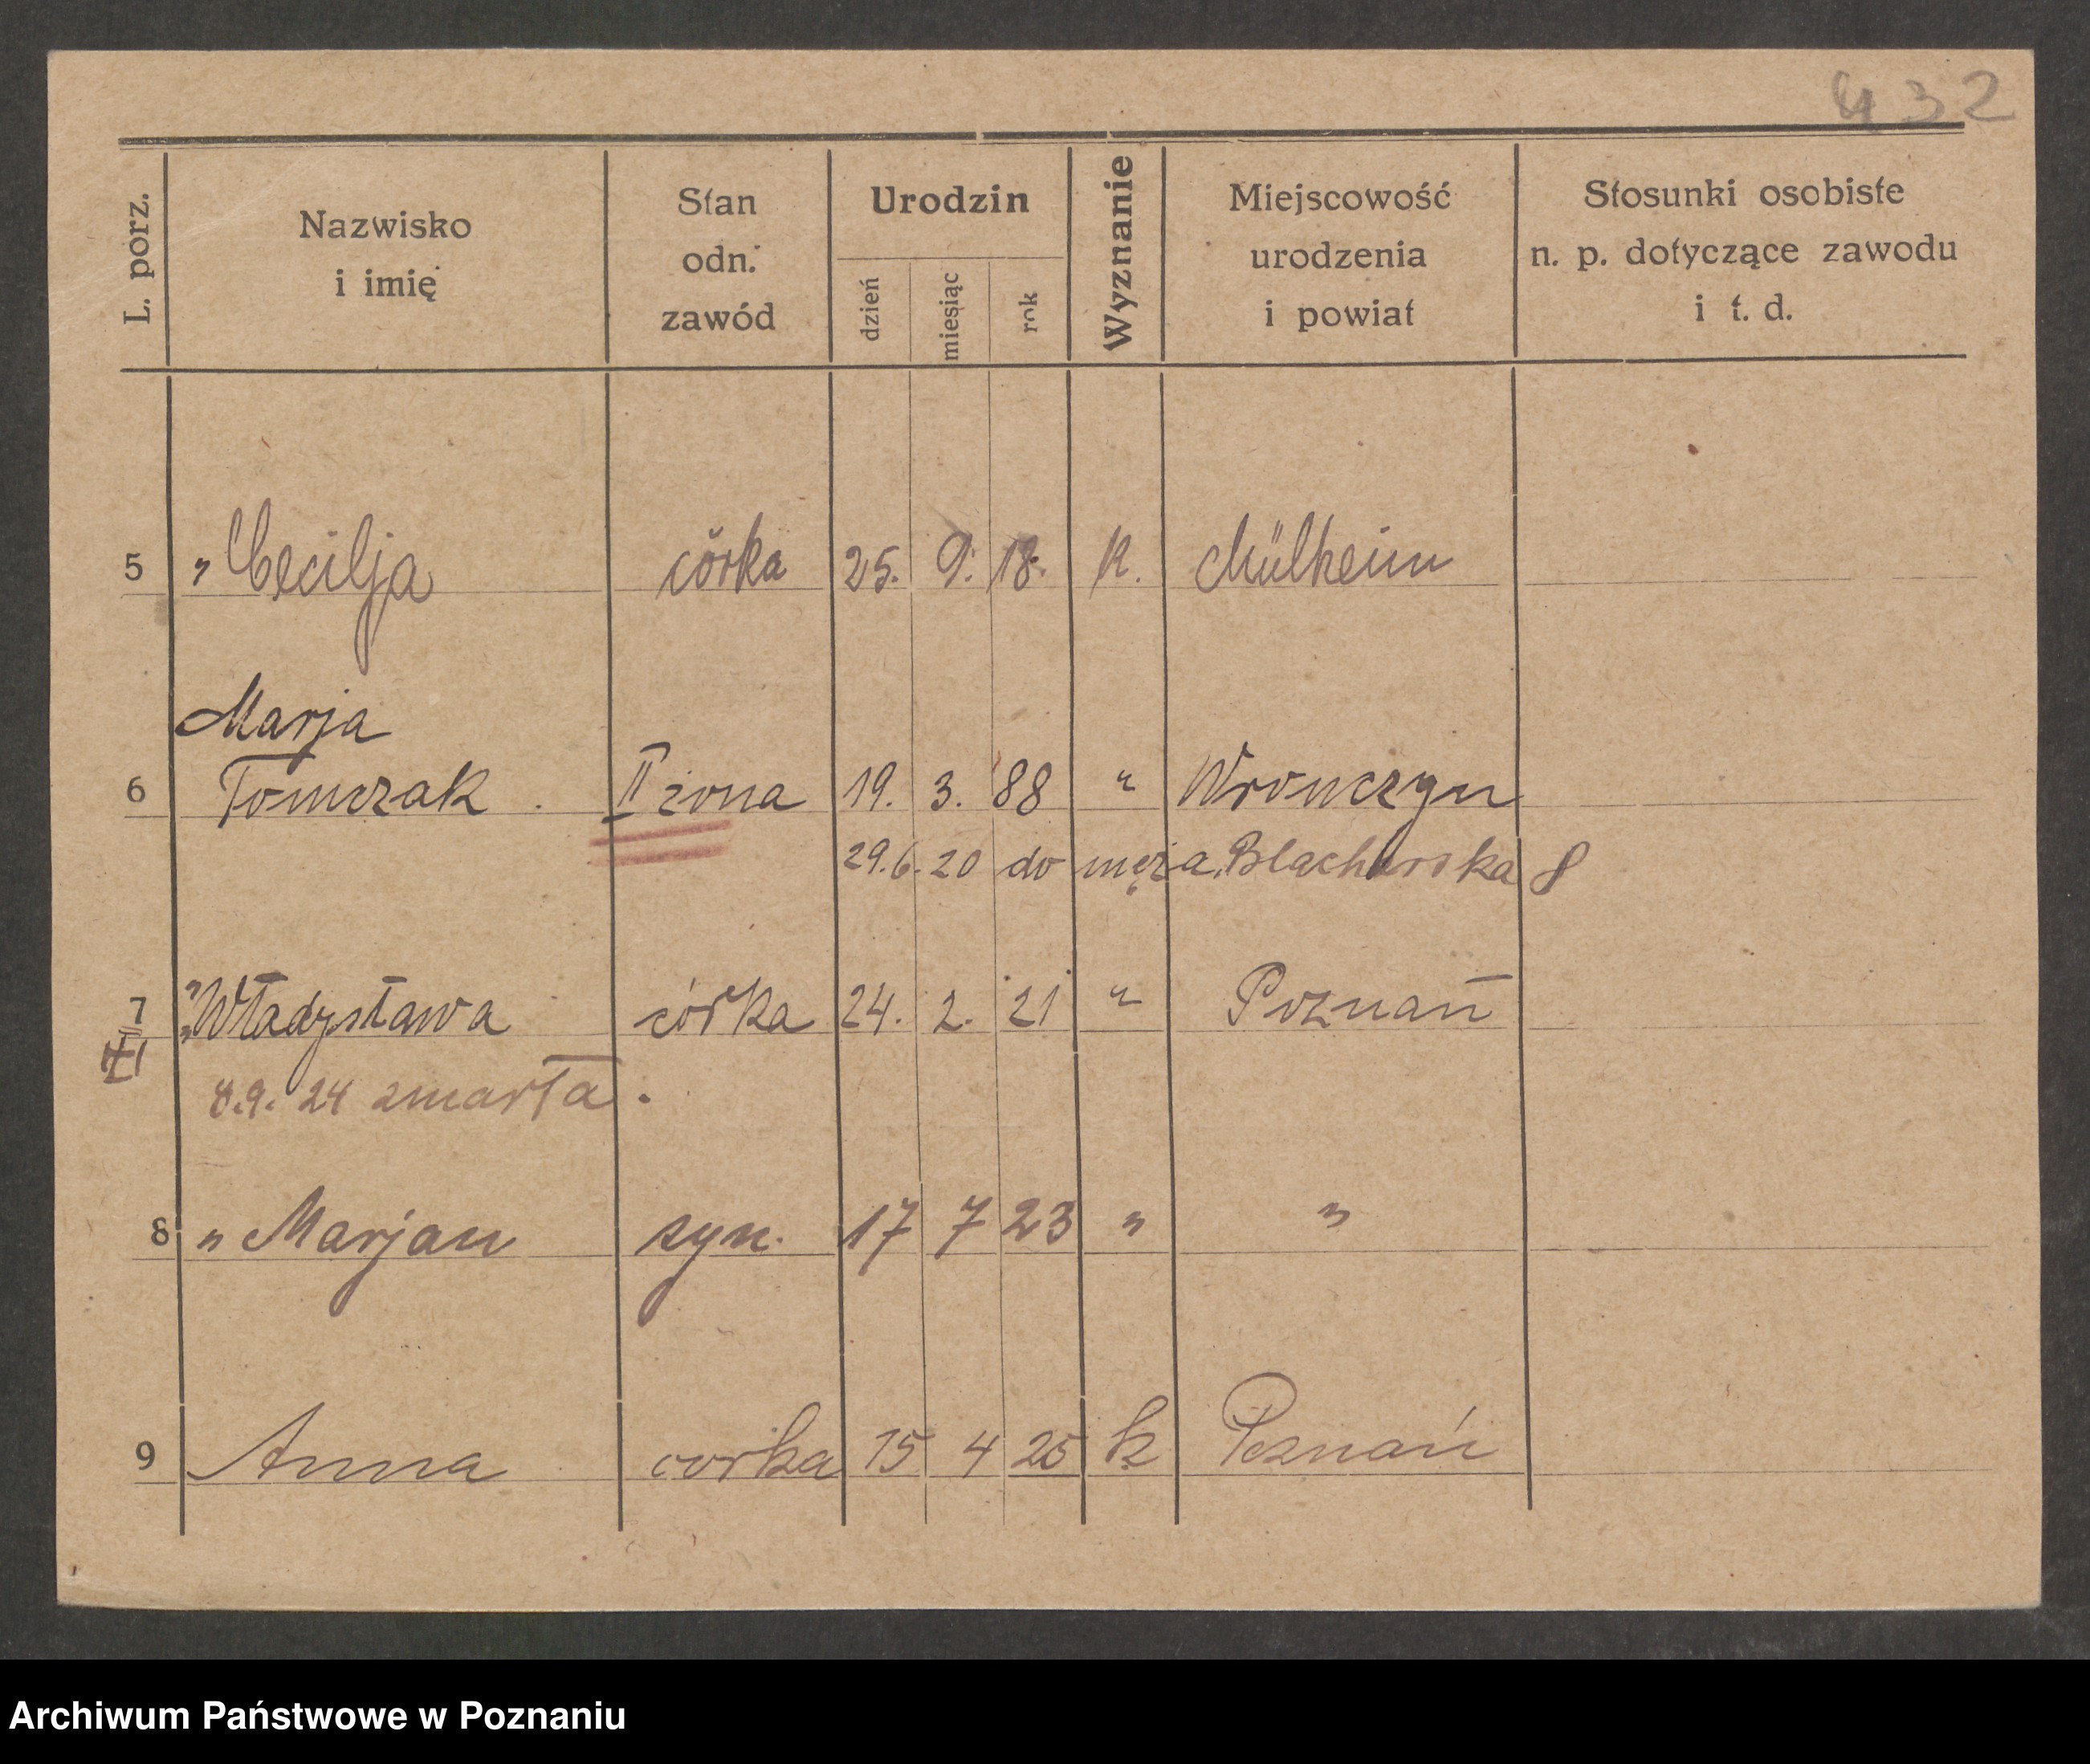 432
L. porz. Nazwisko i imię Stan odn. zawód Urodzin dzień miesiąc rok Wyznanie Miejscowość urodzenia i powiat Stosunki osobiste n. p. dotyczące zawodu i t. d.
5 „ Cecilja córka 25. 9. 18. K. Mülheim
Marja
6 Tomczak . II żona 19. 3. 88 " Wronczyn
29.6.20 do męża, Blacharska 8
7 " Władysława córka 24. 2. 21 " Poznań
8.9.24 zmarła.
8 „ Marjan syn. 17 7 23 " "
9 Anna corka 15 4 25 k Poznań
Archiwum Państwowe w Poznaniu